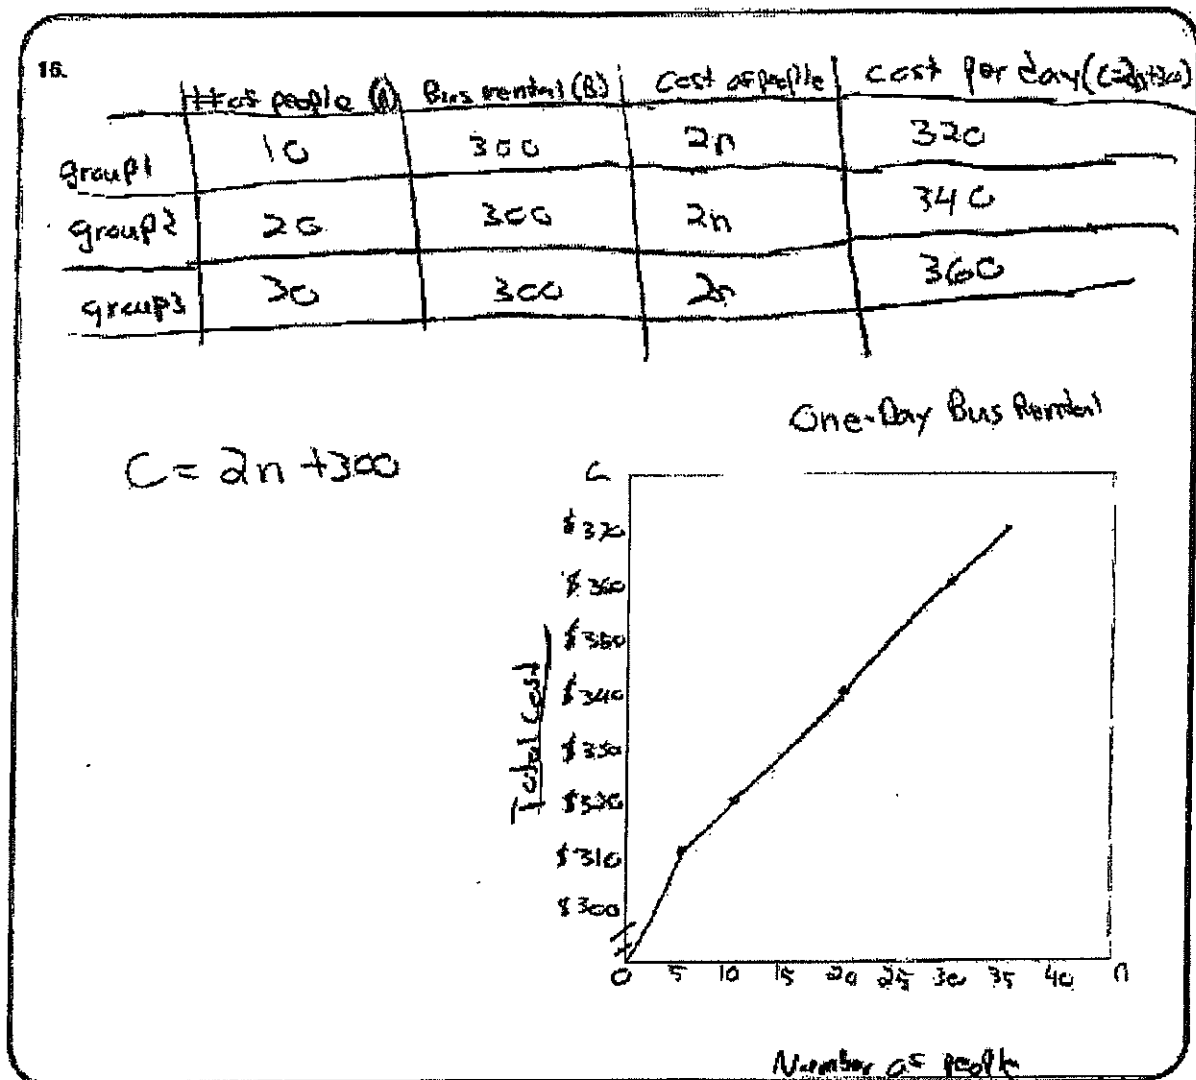 16.
# of people (n) Bus rental (B) Cost of people Cost per day (C=2n+300)
group1 10 300 2n 320
group2 20 300 2n 340
group3 30 300 2n 360
One-Day Bus Rental
C = 2n + 300
C
$370
$360
$350
$340
$330
$320
$310
$300
Total Cost
0 5 10 15 20 25 30 35 40 n
Number of people